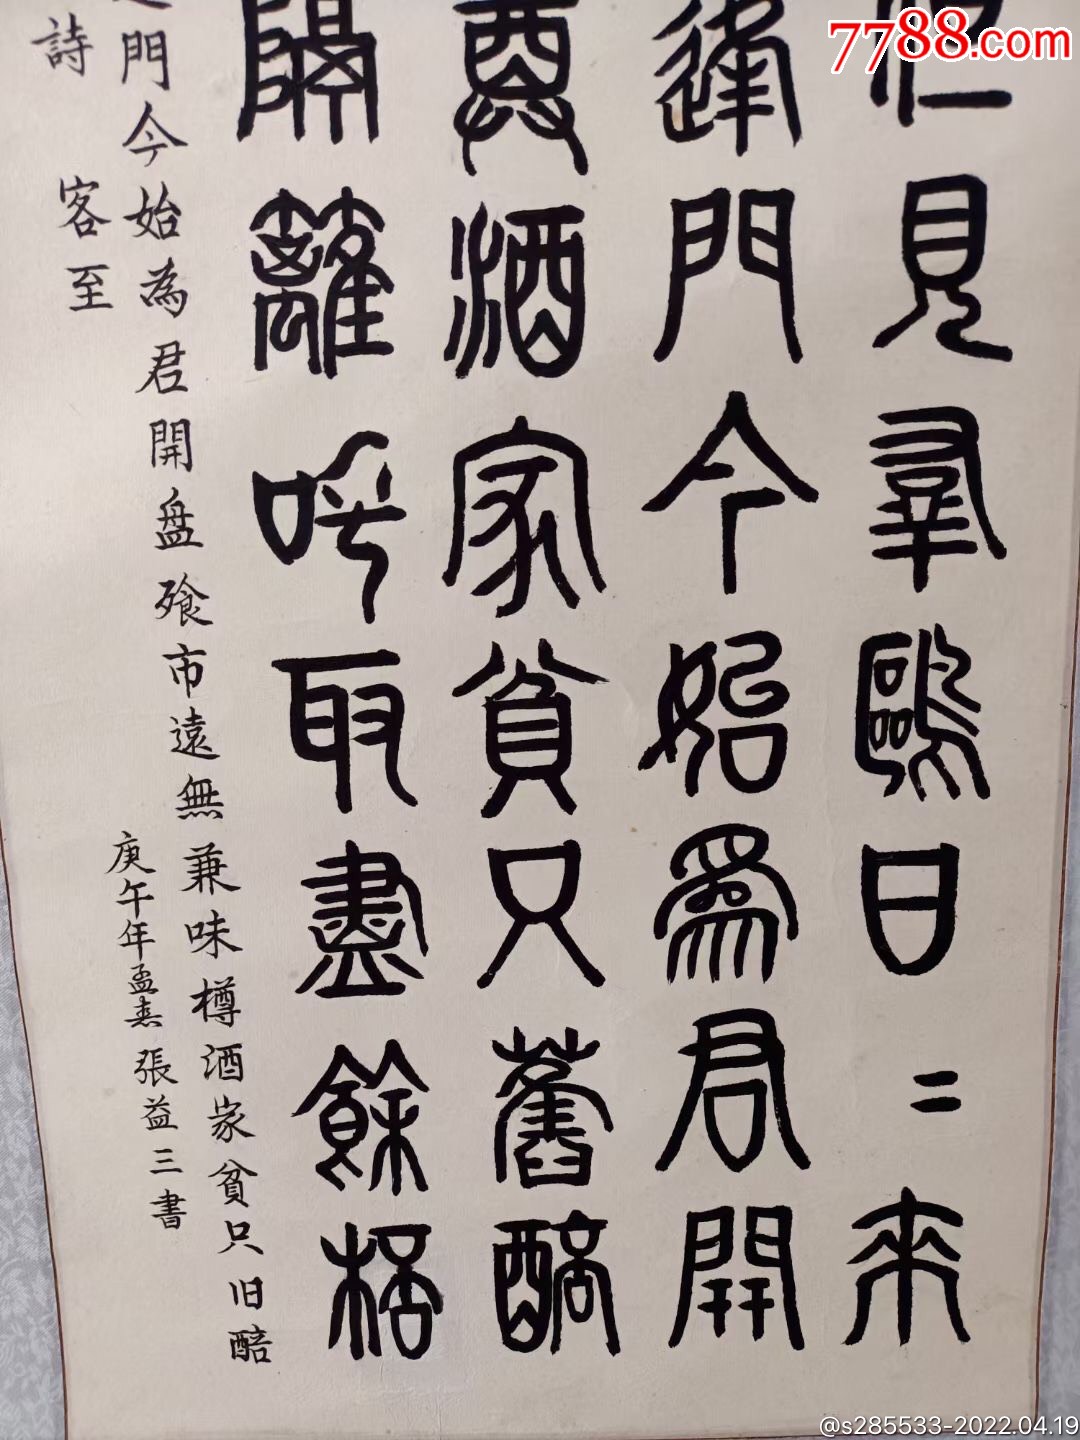 7788.com
但見羣鷗日二來
逢門今始爲君開
尊酒家貧只舊醅
隔籬呼取盡餘桮
門今始為君開盘飱市遠無兼味樽酒家貧只旧醅
詩 客至
庚午年孟春 張益三書
@s285533-2022.04.19